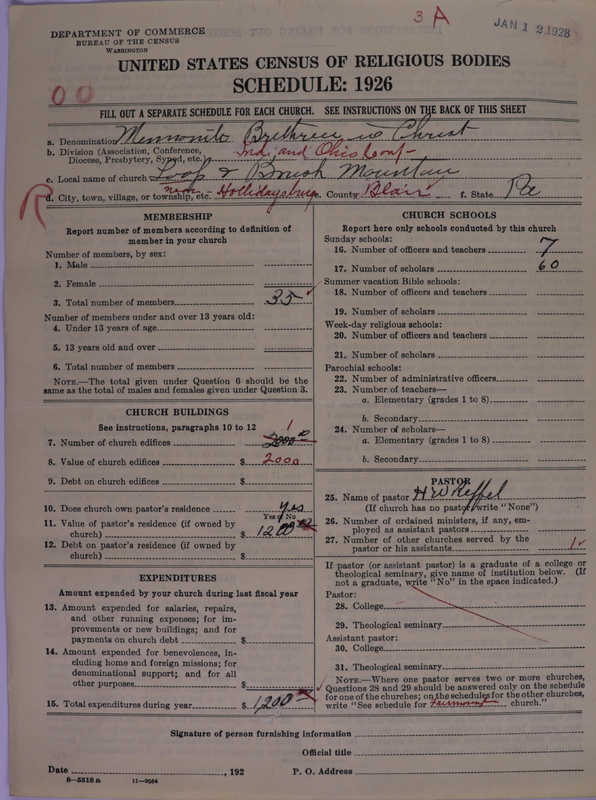 3 A
JAN 12 1928
DEPARTMENT OF COMMERCE
BUREAU OF THE CENSUS
WASHINGTON
UNITED STATES CENSUS OF RELIGIOUS BODIES
SCHEDULE: 1926
00
FILL OUT A SEPARATE SCHEDULE FOR EACH CHURCH. SEE INSTRUCTIONS ON THE BACK OF THIS SHEET
a. Denomination Mennonite Brethren in Christ
b. Division (Association, Conference, Diocese, Presbytery, Synod, etc.) Ind. and Ohio Conf-
c. Local name of church Loop & Brush Mountain
R
d. City, town, village, or township, etc. near- Hollidaysburg e. County Blair f. State Pa
MEMBERSHIP
Report number of members according to definition of
member in your church
Number of members, by sex:
1. Male
2. Female
3. Total number of members 35
Number of members under and over 13 years old:
4. Under 13 years of age
5. 13 years old and over
6. Total number of members
NOTE.—The total given under Question 6 should be the
same as the total of males and females given under Question 3.
CHURCH BUILDINGS
See instructions, paragraphs 10 to 12
7. Number of church edifices 1 2000
8. Value of church edifices $ 2000
9. Debt on church edifices $
10. Does church own pastor's residence Yes
Yes or No
11. Value of pastor's residence (if owned by
church) $ 1200 00
12. Debt on pastor's residence (if owned by
church) $
EXPENDITURES
Amount expended by your church during last fiscal year
13. Amount expended for salaries, repairs,
and other running expenses; for im-
provements or new buildings; and for
payments on church debt $
14. Amount expended for benevolences, in-
cluding home and foreign missions; for
denominational support; and for all
other purposes $
15. Total expenditures during year $ 1,200
CHURCH SCHOOLS
Report here only schools conducted by this church
Sunday schools:
16. Number of officers and teachers 7
17. Number of scholars 60
Summer vacation Bible schools:
18. Number of officers and teachers
19. Number of scholars
Week-day religious schools:
20. Number of officers and teachers
21. Number of scholars
Parochial schools:
22. Number of administrative officers
23. Number of teachers—
a. Elementary (grades 1 to 8)
b. Secondary
24. Number of scholars—
a. Elementary (grades 1 to 8)
b. Secondary
PASTOR
25. Name of pastor H W
(If church has no pastor, write "None")
26. Number of ordained ministers, if any, em-
ployed as assistant pastors
27. Number of other churches served by the
pastor or his assistants 1
If pastor (or assistant pastor) is a graduate of a college or
theological seminary, give name of institution below. (If
not a graduate, write "No" in the space indicated.)
Pastor:
28. College
29. Theological seminary
Assistant pastor:
30. College
31. Theological seminary
NOTE.—Where one pastor serves two or more churches,
Questions 28 and 29 should be answered only on the schedule
for one of the churches; on the schedules for the other churches,
write "See schedule for Fairmount church."
Signature of person furnishing information
Official title
Date , 192 P. O. Address
8—5518 a 11—9054